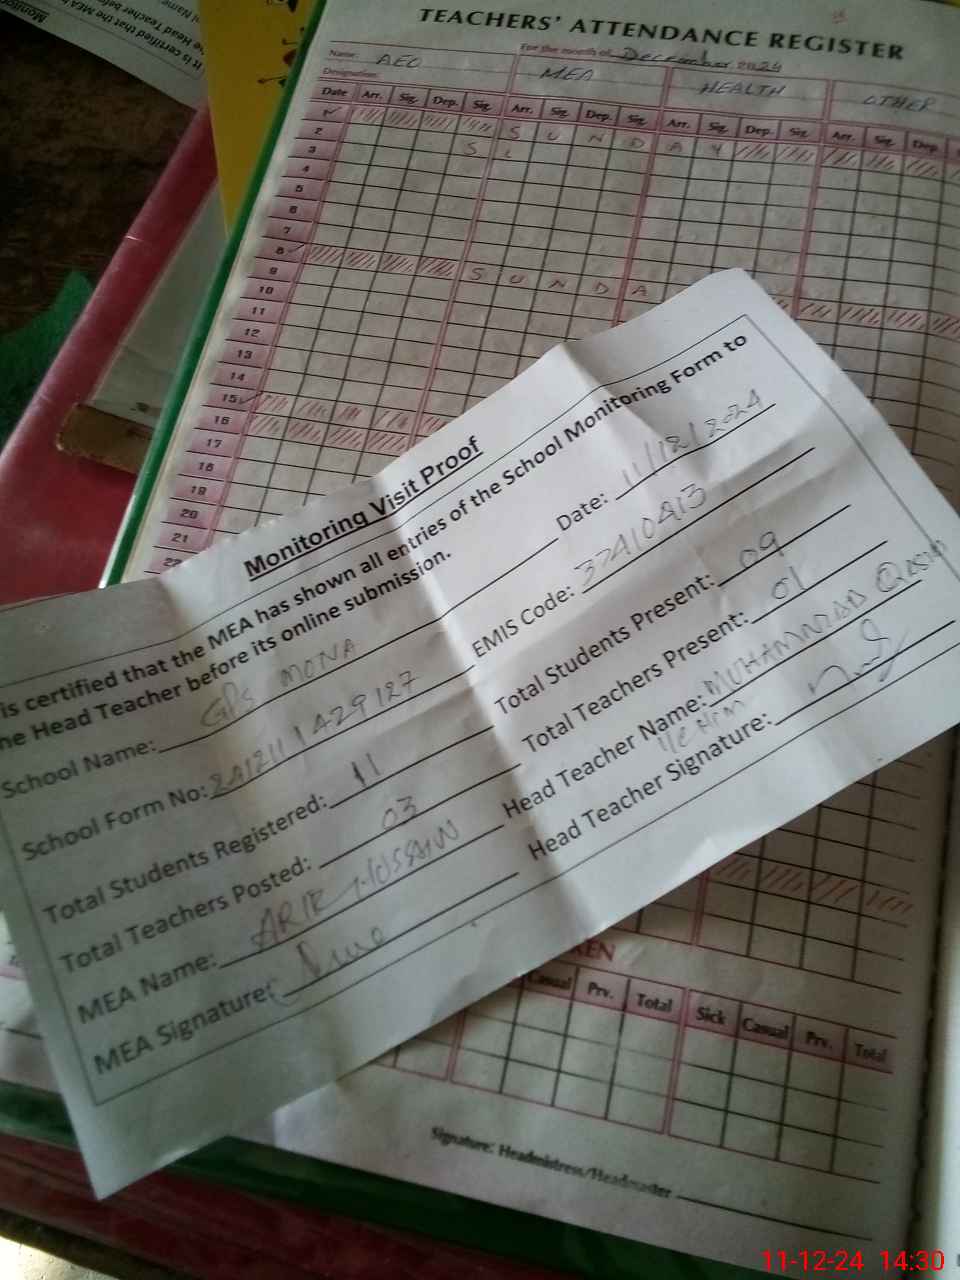 It is certified that the MEA h
the Head Teacher before its
TEACHERS' ATTENDANCE REGISTER
For the month of December 2024
Name: AEO MEA HEALTH OTHER
Designation:
Date Arr. Sig. Dep. Sig. Arr. Sig. Dep. Sig. Arr. Sig. Dep. Sig. Arr. Sig. Dep.
2 S U N D A Y
3
4
5
6
7
8
9 S U N D A
10
11
12
13
14
15
16
17
18
19
20
21
22
Monitoring Visit Proof
is certified that the MEA has shown all entries of the School Monitoring Form to
he Head Teacher before its online submission.
Date: 11/12/2024
School Name: GPS MONA
EMIS Code: 37410413
School Form No: 241211 1429127
Total Students Present: 09
Total Students Registered: 11
Total Teachers Present: 01
Total Teachers Posted: 03
Head Teacher Name: MUHAMMAD
MEA Name: HUSSAIN
Head Teacher Signature:
MEA Signature:
KEN
Casual Prv. Total Sick Casual Prv. Total
Signature: Headmistress/Headmaster
11-12-24 14:30